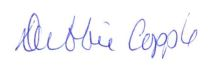 Debbie Copple